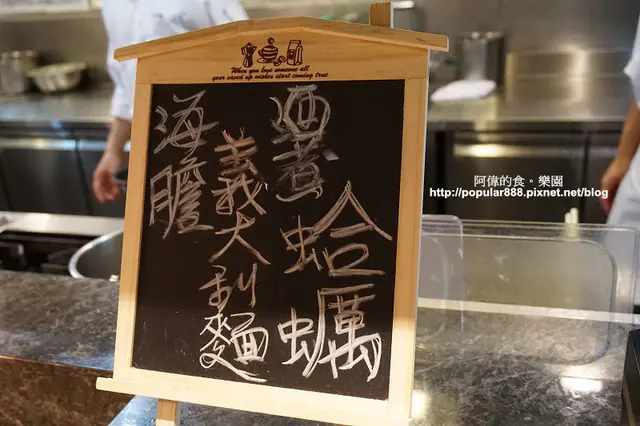 When you love someone all
your saved up wishes start coming true
酒煮蛤蠣
海膽
義大利麵
阿偉的食。樂園
http://popular888.pixnet.net/blog